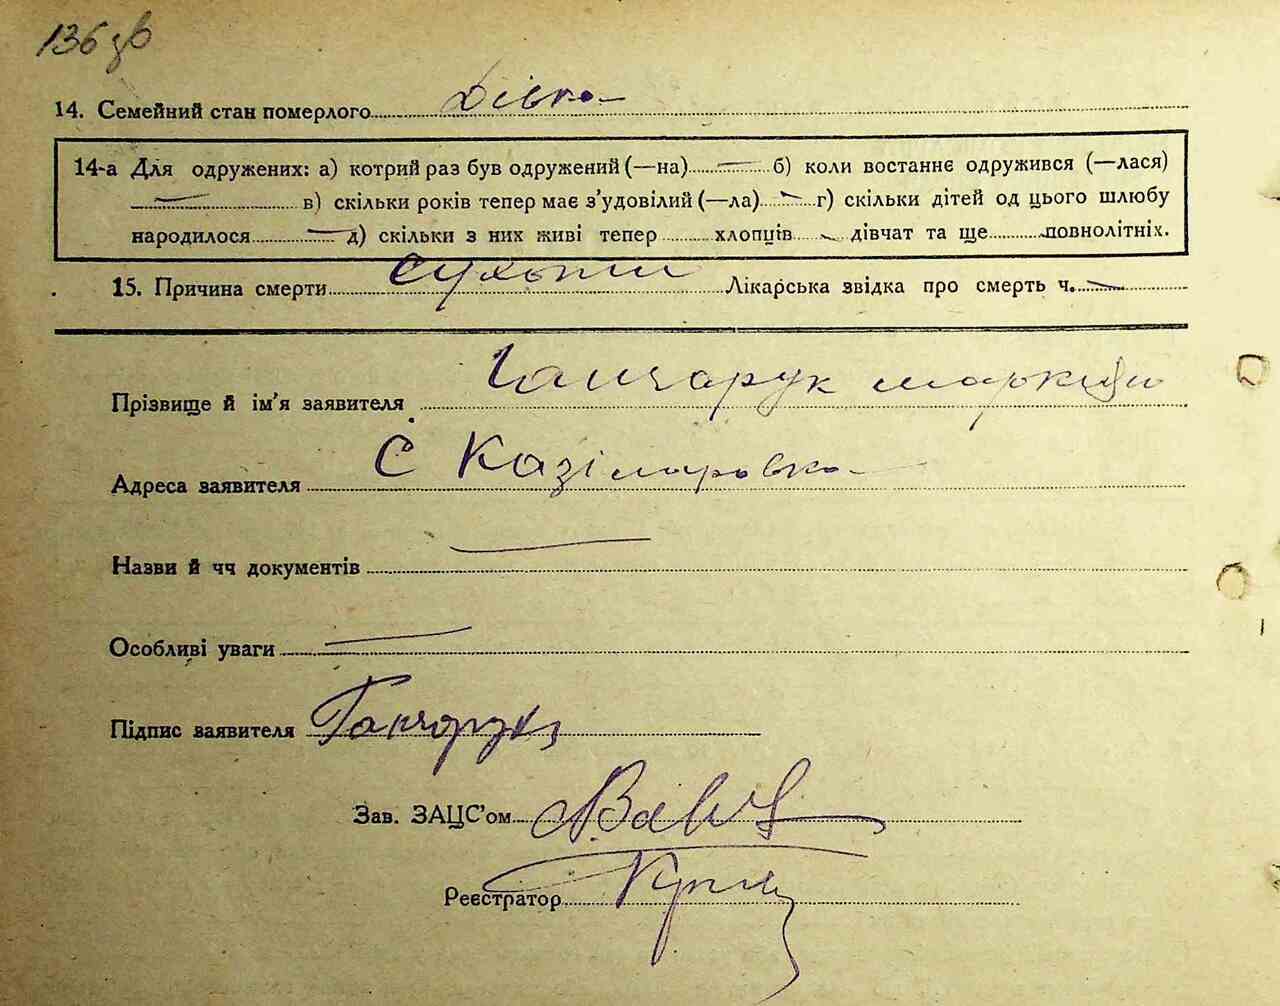 136 зв
14. Семейний стан померлого Дівка
14-а Для одружених: а) котрий раз був одружений (—на) — б) коли востаннє одружився (—лася)
— в) скільки років тепер має з’удовілий (—ла) — г) скільки дітей од цього шлюбу
народилося — д) скільки з них живі тепер хлопців — дівчат та ще повнолітніх.
15. Причина смерти Сухоти Лікарська звідка про смерть ч. —
Прізвище й ім’я заявителя Ганчарук
Адреса заявителя С Казімировка
Назви й чч документів —
Особливі уваги —
Підпис заявителя Ганчарук
Зав. ЗАЦС’ом
Реєстратор